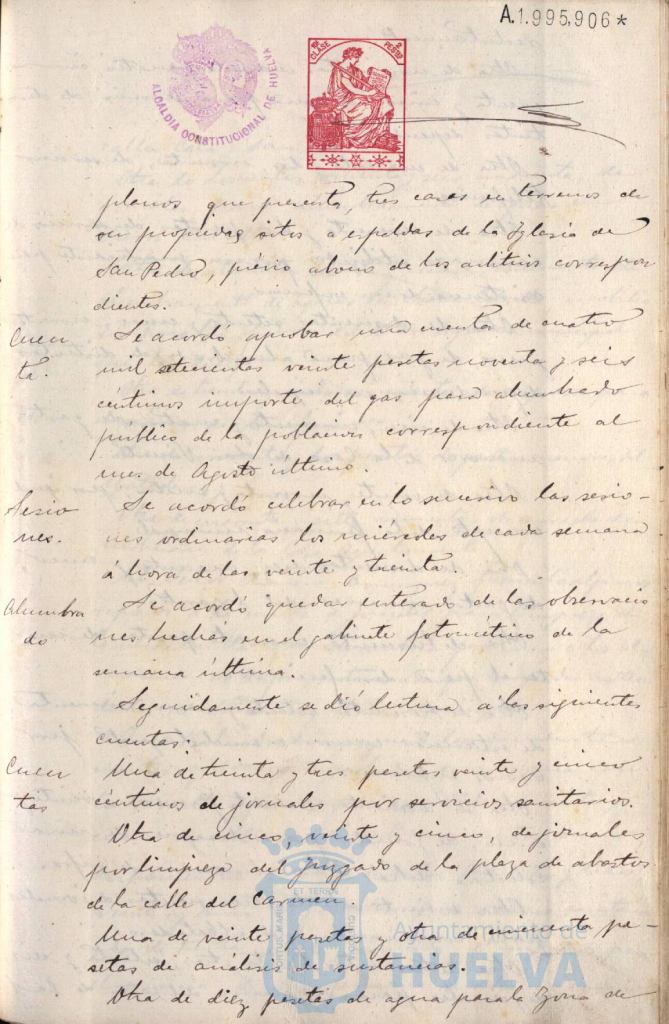 A.1.995,906*
ALCALDIA CONSTITUCIONAL DE HUELVA
CLASE 2 PESETAS
planos que presenta, tres casas en terrenos de
su propiedad sitos a espaldas de la Iglesia de
San Pedro, previo abono de los arbitrios correspon
dientes.
Cuen
ta.
Se acordó aprobar una cuenta de cuatro
mil setecientas veinte pesetas noventa y seis
céntimos importe del gas para alumbrado
público de la poblacion correspondiente al
mes de Agosto último.
Sesio
nes.
Se acordó celebrar en lo sucesivo las sesio-
nes ordinarias los miércoles de cada semana
á hora de las veinte y treinta.
Alumbra
do
Se acordó quedar enterado de las observacio
nes hechas en el gabinete fotométrico de la
semana última.
Seguidamente se dió lectura á las siguientes
cuentas.
Cuen
tas
Una de treinta y tres pesetas veinte y cinco
céntimos de jornales por servicios sanitarios.
Otra de cinco, veinte y cinco, de jornales
por limpieza del Juzgado de la plaza de abastos
de la calle del Carmen.
Una de veinte pesetas y otra de cincuenta pe-
setas de análisis de sustancias.
Otra de diez pesetas de agua para la zona de
Ayuntamiento de
HUELVA